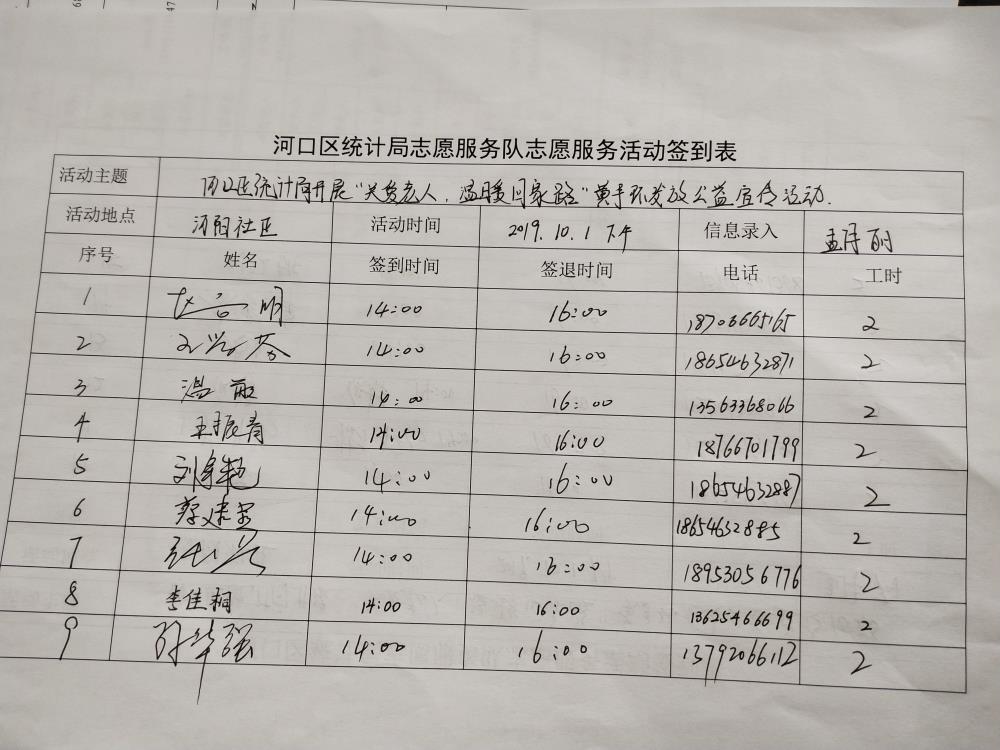 河口区统计局志愿服务队志愿服务活动签到表
活动主题 河口区统计局开展“关爱老人，温暖回家路”黄手环发放公益宣传活动.
活动地点 河阳社区 活动时间 2019.10.1 下午 信息录入 孟丽
序号 姓名 签到时间 签退时间 电话 工时
1 明 14:00 16:00 18706665165 2
2 14:00 16:00 18654632871 2
3 温丽 14:00 16:00 13563368066 2
4 王振青 14:00 16:00 18766701799 2
5 刘艳 14:00 16:00 18654632887 2
6 蔡建 14:00 16:00 18654632885 2
7 14:00 16:00 18953056776 2
8 李佳桐 14:00 16:00 13625466699 2
9 孙华强 14:00 16:00 13792066112 2